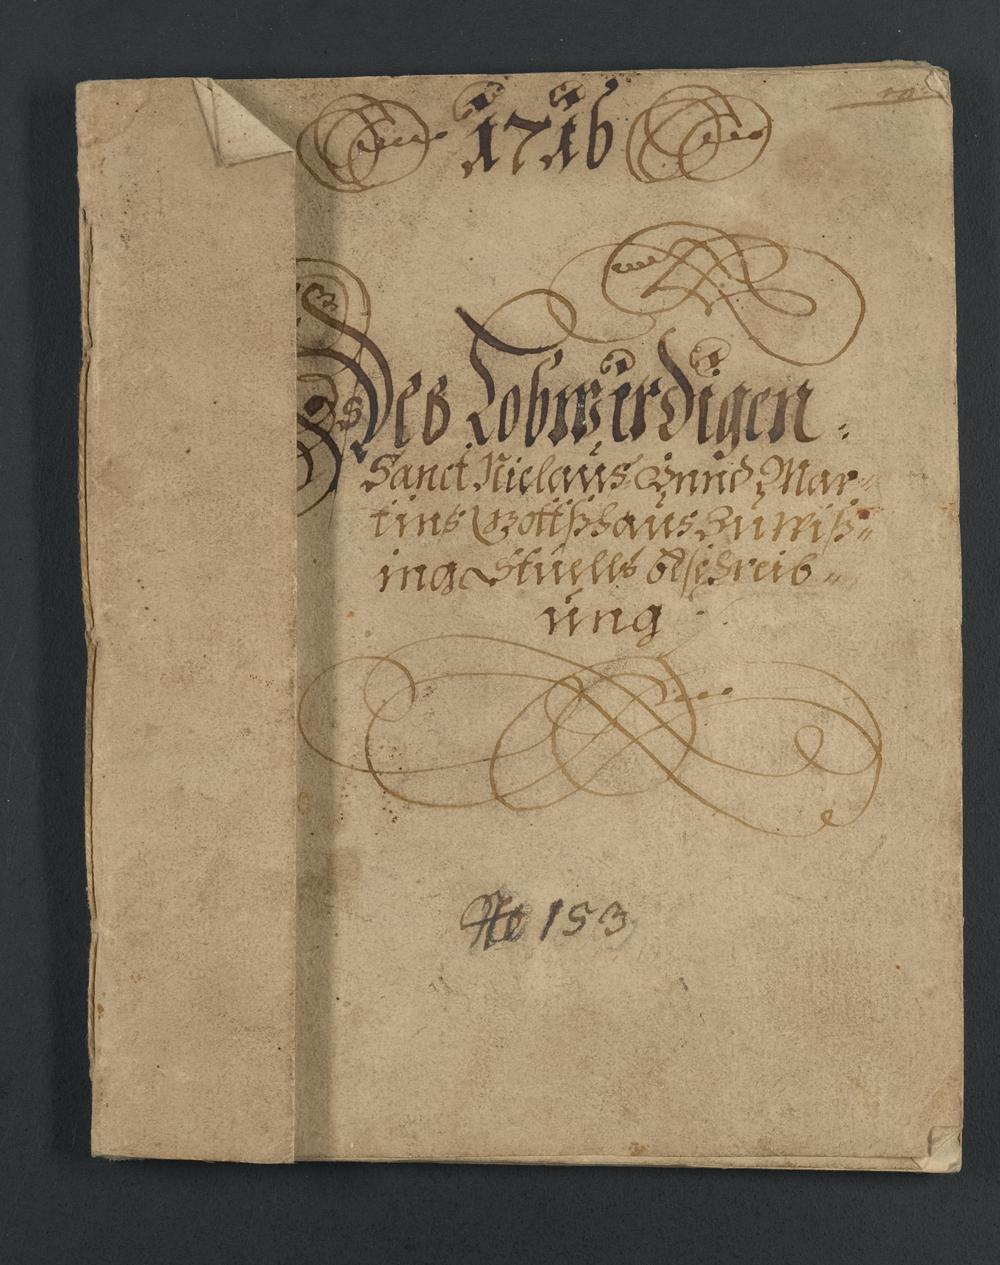 1716
Des Lobwürdigen
Sanct Niclaus Vnnd Mar=
tins Gottßhaus Zu wiß=
ing Stuells bschreib=
ung
No 153